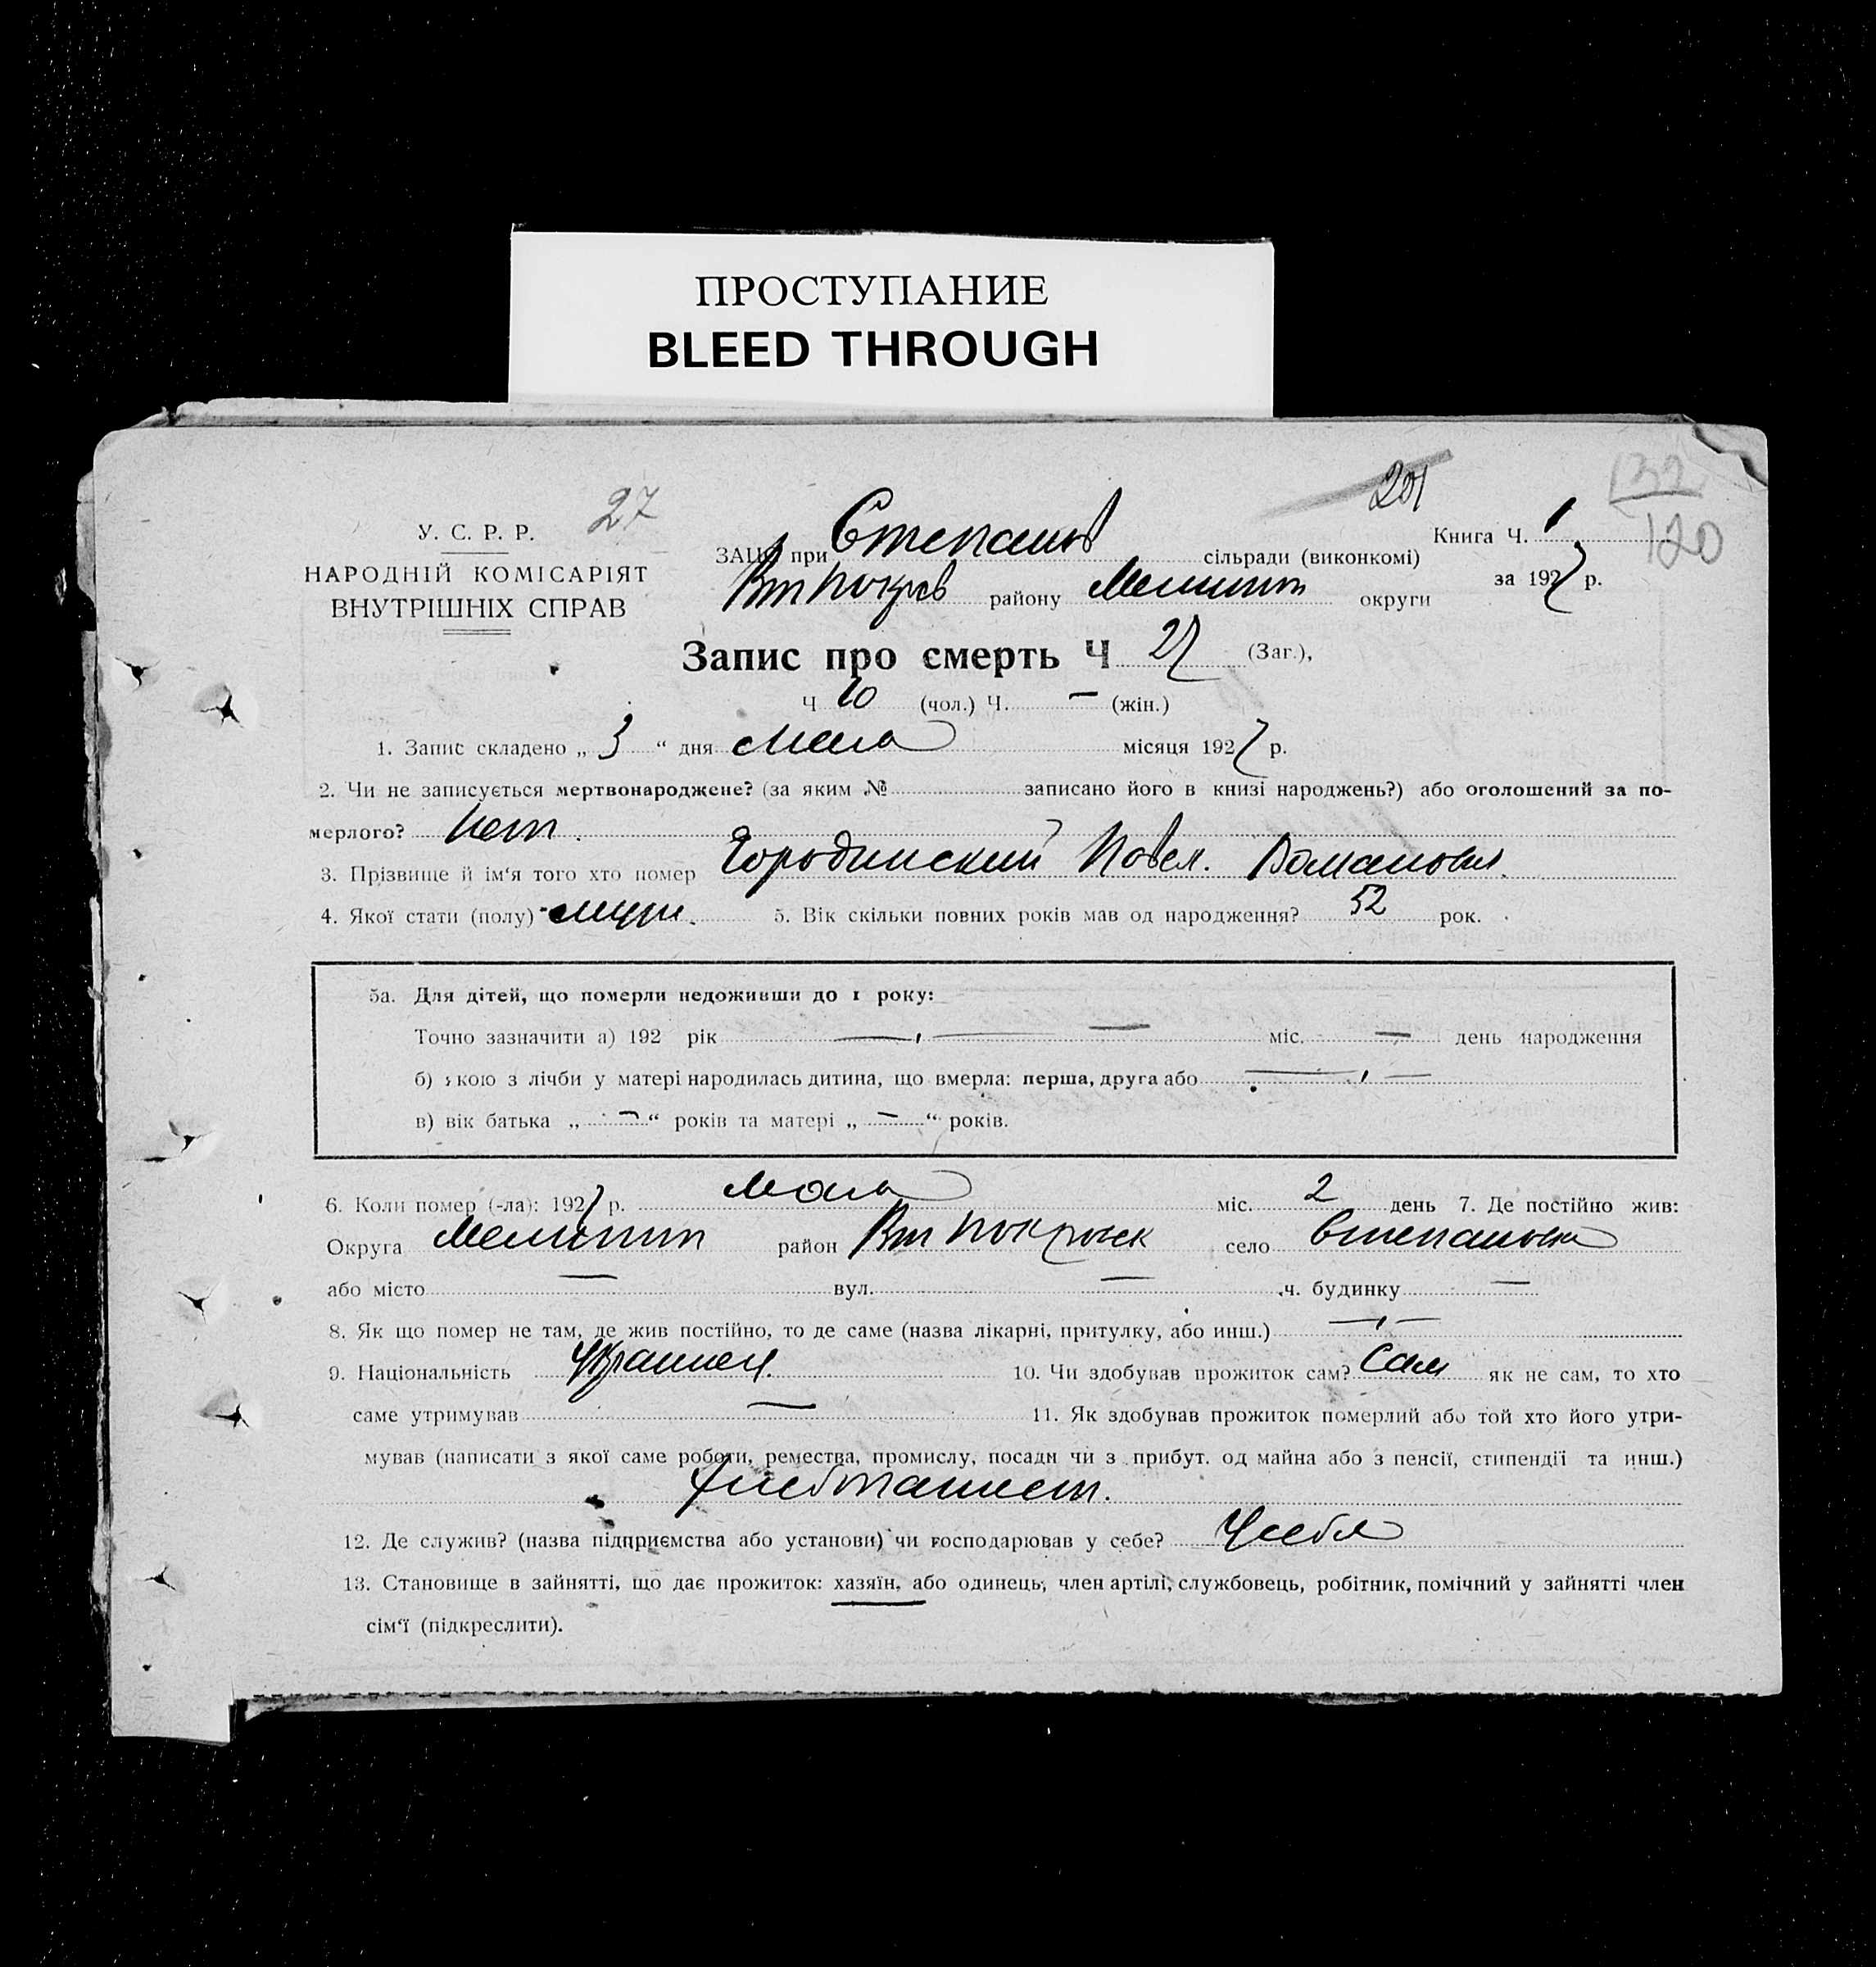 ПРОСТУПАНИЕ
BLEED THROUGH
201
132
120
27
У. С. Р. Р.
НАРОДНІЙ КОМІСАРІЯТ
ВНУТРІШНІХ СПРАВ
ЗАЦС при Степанов сільради (виконкомі)
Вт Покров району Мелитоп округи
Книга Ч. 1
за 1927 р.
Запис про смерть Ч 27 (Заг.),
Ч 10 (чол.) Ч. – (жін.)
1. Запис складено „ 3 “ дня Мая місяця 1927 р.
2. Чи не записується мертвонароджене? (за яким № записано його в книзі народжень?) або оголошений за по-
мерлого? Нет.
3. Прізвище й ім‘я того хто помер Городинский Павел. Романович.
4. Якої стати (полу) муж. 5. Вік скільки повних років мав од народження? 52 рок.
5а. Для дітей, що померли недоживши до 1 року:
Точно зазначити а) 192 рік —,— — міс. — день народження
б) якою з лічби у матері народилась дитина, що вмерла: перша, друга або —,—
в) вік батька „ – “ років та матері „ – “ років.
6. Коли помер (-ла): 1927 р. Мая міс. 2 день 7. Де постійно жив:
Округа Мелитоп район Вт Покровск село Степановка
або місто — вул. — ч. будинку —
8. Як що помер не там, де жив постійно, то де саме (назва лікарні, притулку, або инш.) —,—
9. Національність Украинец. 10. Чи здобував прожиток сам? Сам як не сам, то хто
саме утримував — 11. Як здобував прожиток померлий або той хто його утри-
мував (написати з якої саме роботи, ремества, промислу, посади чи з прибут. од майна або з пенсії, стипендії та инш.)
Хлебопашест.
12. Де служив? (назва підприємства або установи) чи господарював у себе? У себя
13. Становище в зайнятті, що дає прожиток: хазяїн, або одинець, член артілі, службовець, робітник, помічний у зайнятті член
сім‘ї (підкреслити).